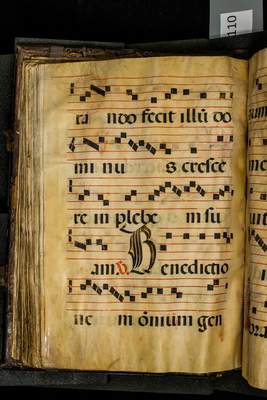 110
ra ndo fecit illũ do
mi nu s cresce
re in plebe m su
am. V. Benedictio
ne m õnium gen